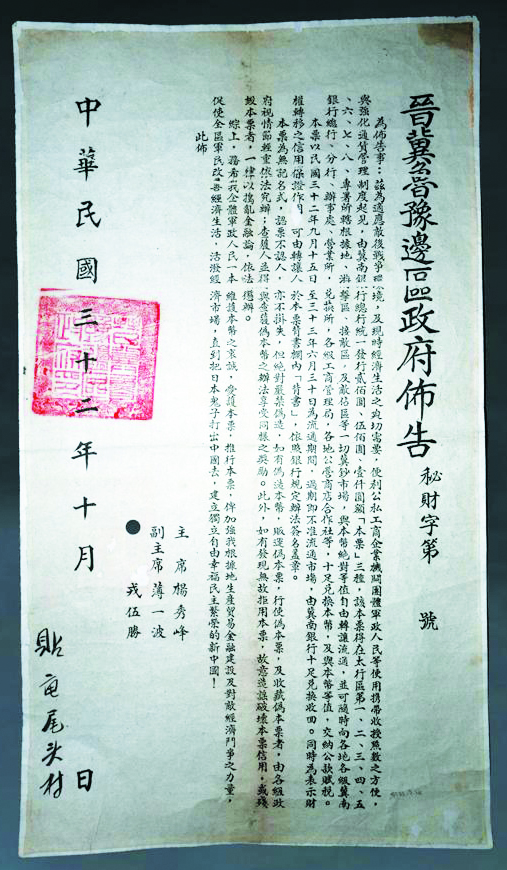 晉冀魯豫邊區政府佈告
秘財字第　號
為佈告事：茲為適應敵後戰爭環境，及現時經濟生活之迫切需要，便利公私工商企業機關團體軍政人民等使用携帶收授照數之方便，
與強化通貨管理制度起見，由冀南銀行總行統一發行貳佰圓、伍佰圓、壹仟圓額「本票」三種，該本票得在太行區第一、二、三、四、五
、六、七、八、專署所轄根據地、游擊區、接敵區，及敵佔區等一切冀鈔市場，與本幣絕對等值自由轉讓流通，並可隨時向各地各級冀南
銀行總行、分行、辦事處、營業所，兌換所，各級工商管理局，各地公營商店合作社等，十足兌換本幣，及與本幣等值，交納公款賦稅。
本票以民國三十二年九月十五日至三十三年六月三十日為流通期間，過期即不准流通市場，由冀南銀行十足兌換收回。同時為表示財
權轉移之信用保證作用，可由轉讓人於本票背書欄內「背書」，依照銀行規定辦法簽名蓋章。
本票為無記名式，認票不認人，亦不掛失，但絕對嚴禁偽造，如有偽造本票，販運偽本票，行使偽本票，及收藏偽本票者，由各級政
府視情節輕重依法究辦；查獲人並得與查獲偽本幣之辦法享受同樣之獎勵。此外，如有發現無故拒用本票，故意造謠破壞本票信用，或殘
毀本票者，一律以擾亂金融論，依法懲辦。
綜上，務希我全體軍政人民一本維護本幣之衷誠，愛護本票，推行本票，俾加強我根據地生產貿易金融建設及對敵經濟鬥爭之力量，
促使全區軍民改善經濟生活，活潑經濟市場，直到把日本鬼子打出中國去，建立獨立自由幸福民主繁榮的新中國！
此佈
主席　楊秀峰
副主席　薄一波
戎伍勝
中華民國三十二年十月　日
貼　尾头村